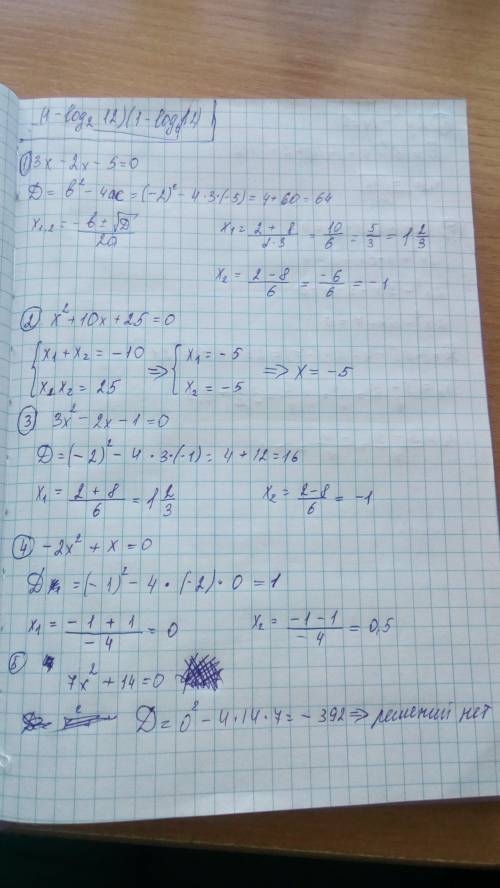 (1 - log₂ 12)(1 - log₆ 12)
① 3x - 2x - 5 = 0
D = b² - 4ac = (-2)² - 4·3·(-5) = 4 + 60 = 64
x₁,₂ = (-b ± √D)/2a   x₁ = (2 + 8)/(2·3) = 10/6 = 5/3 = 1 2/3
x₂ = (2 - 8)/6 = -6/6 = -1
② x² + 10x + 25 = 0
{ x₁ + x₂ = -10   ⇒ { x₁ = -5
x₁x₂ = 25   x₂ = -5   ⇒ x = -5
③ 3x² - 2x - 1 = 0
D = (-2)² - 4·3·(-1) = 4 + 12 = 16
x₁ = (2 + 8)/6 = 1 2/3   x₂ = (2 - 8)/6 = -1
④ -2x² + x = 0
D = (-1)² - 4·(-2)·0 = 1
x₁ = (-1 + 1)/-4 = 0   x₂ = (-1 - 1)/-4 = 0,5
⑤ 7x² + 14 = 0
D = 0² - 4·14·7 = -392 ⇒ решений нет